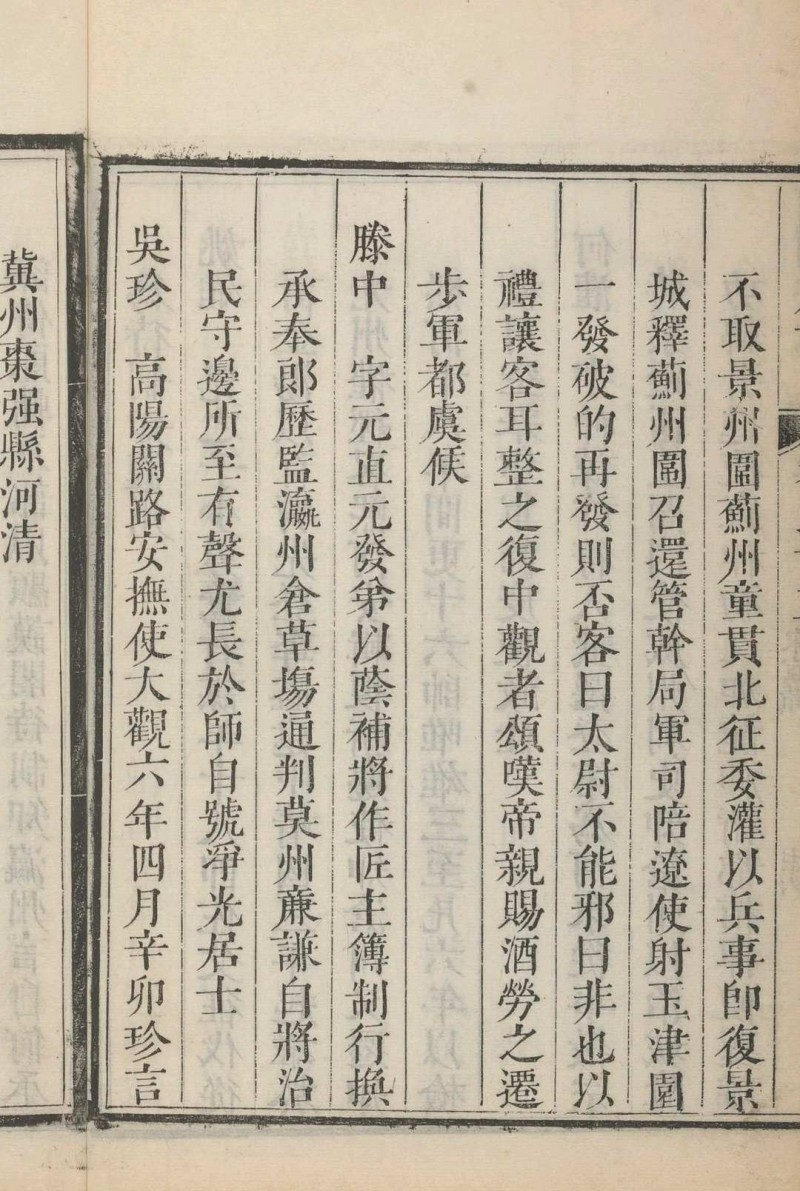 不取景州圍薊州童貫北征委灌以兵事卽復景
城釋薊州圍召還管幹局軍司陪遼使射玉津園
一發破的再發則否客曰太尉不能邪曰非也以
禮讓客耳整之復中觀者頌嘆帝親賜酒勞之遷
步軍都虞候
滕中　字元直元發弟以蔭補將作匠主簿制行換
承奉郎歷監瀛州倉草塲通判莫州亷謙自將治
民守邊所至有聲尤長於師自號淨光居士
吳珍　高陽關路安撫使大觀六年四月辛卯珍言
冀州棗强縣河清